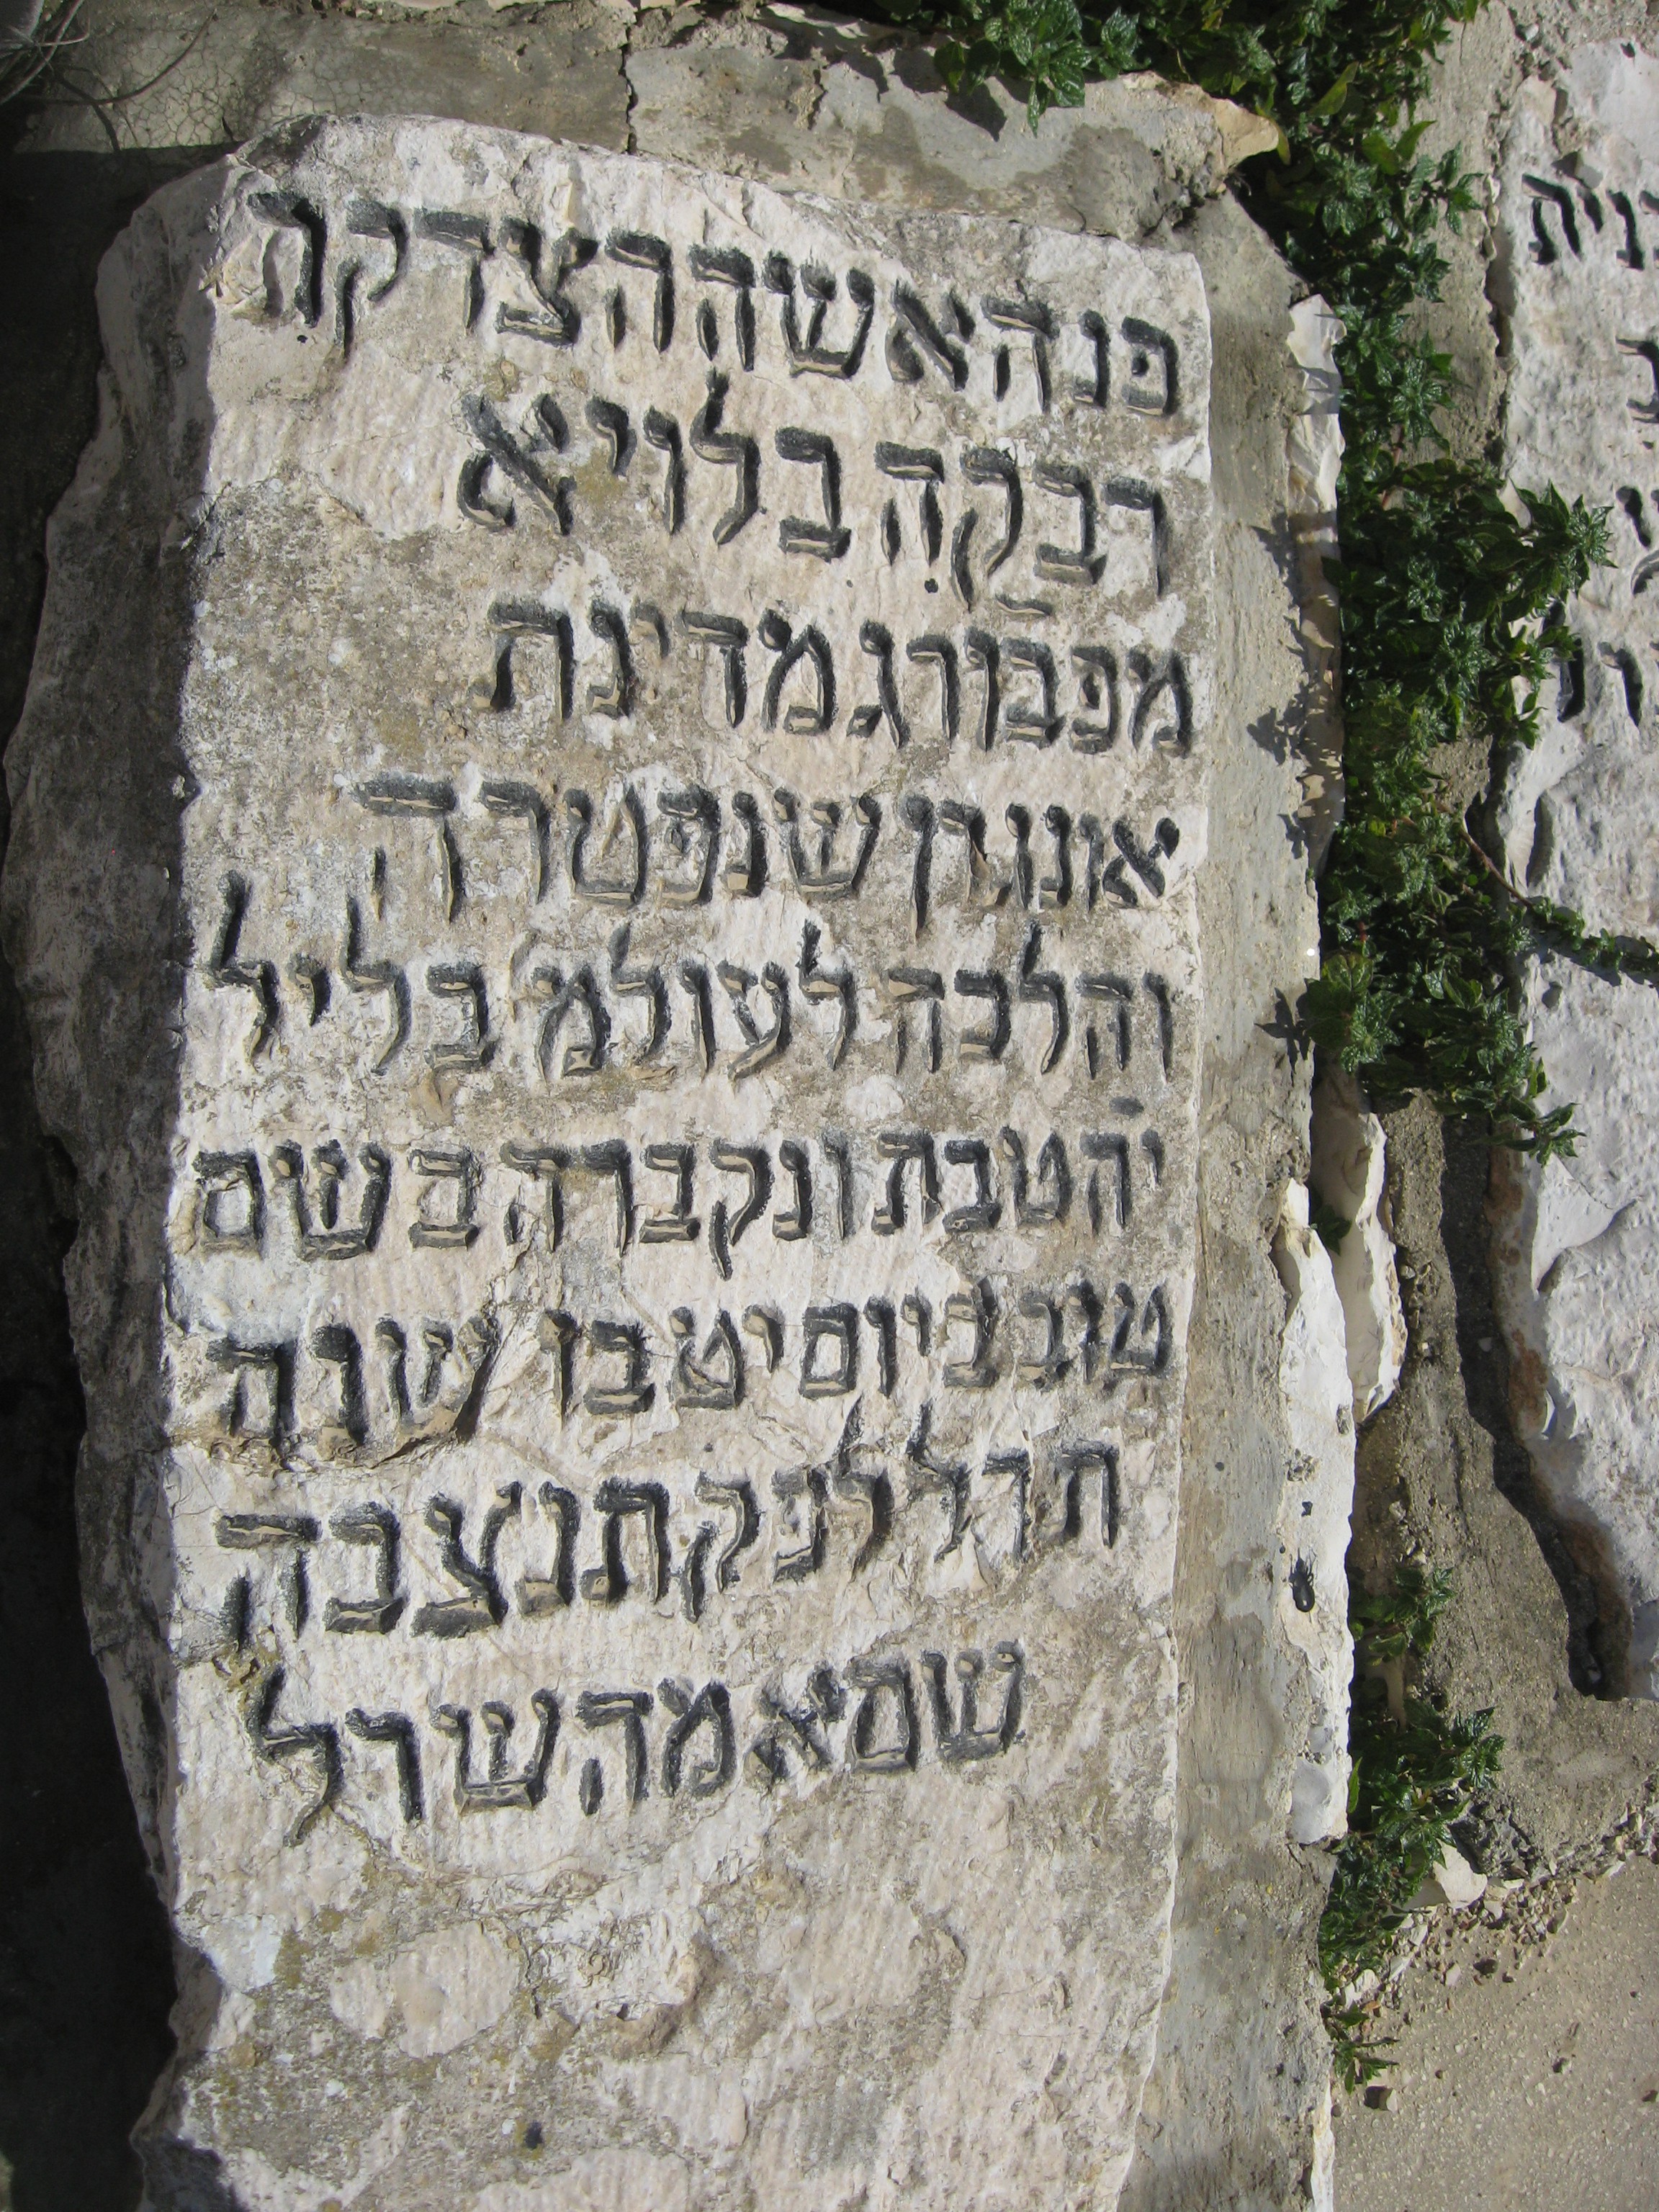 פנהאשההצדקר
רבקה בלויא
מפבורגמדינת
אונגרן שנפטרה
והלכה לעולמ בליל
יהטבת ונקברה בשם
טוב ביום יט בו שנה
תרל לפק תנצבה
שם א מה שרל